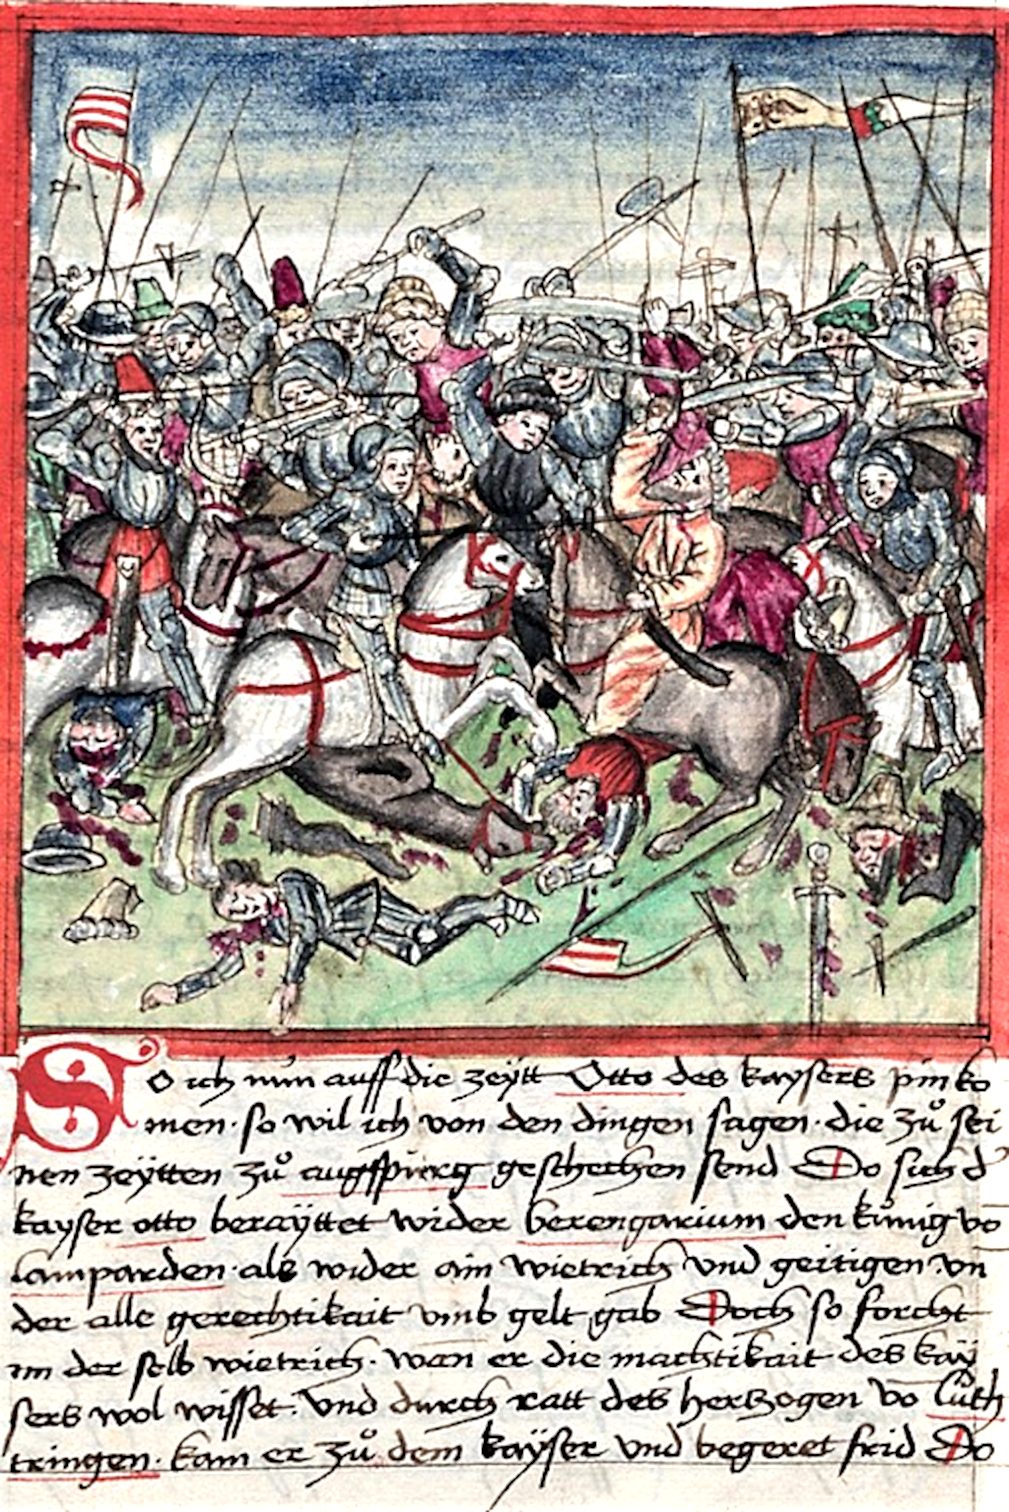 So ich nun auff die zeÿtt Otto des kaysers pin ko
men · so wil ich von den dingen sagen · die zů sei
nen zeÿtten zů augspurg geschechen send Do sich d
kayser otto beraÿttet wider berengarium den künig vo
lamparden · als wider ain wietrich vnd geitigen · vn
der alle gerechtikait vmb gelt gab Doch so forcht
im der selb wietrich · wan er die machtikait des kaÿ
sers wol wisset · Vnd durch ratt des hertzogen vo Luth
tringen · kam er zů dem kaÿser vnd begeret frid Do